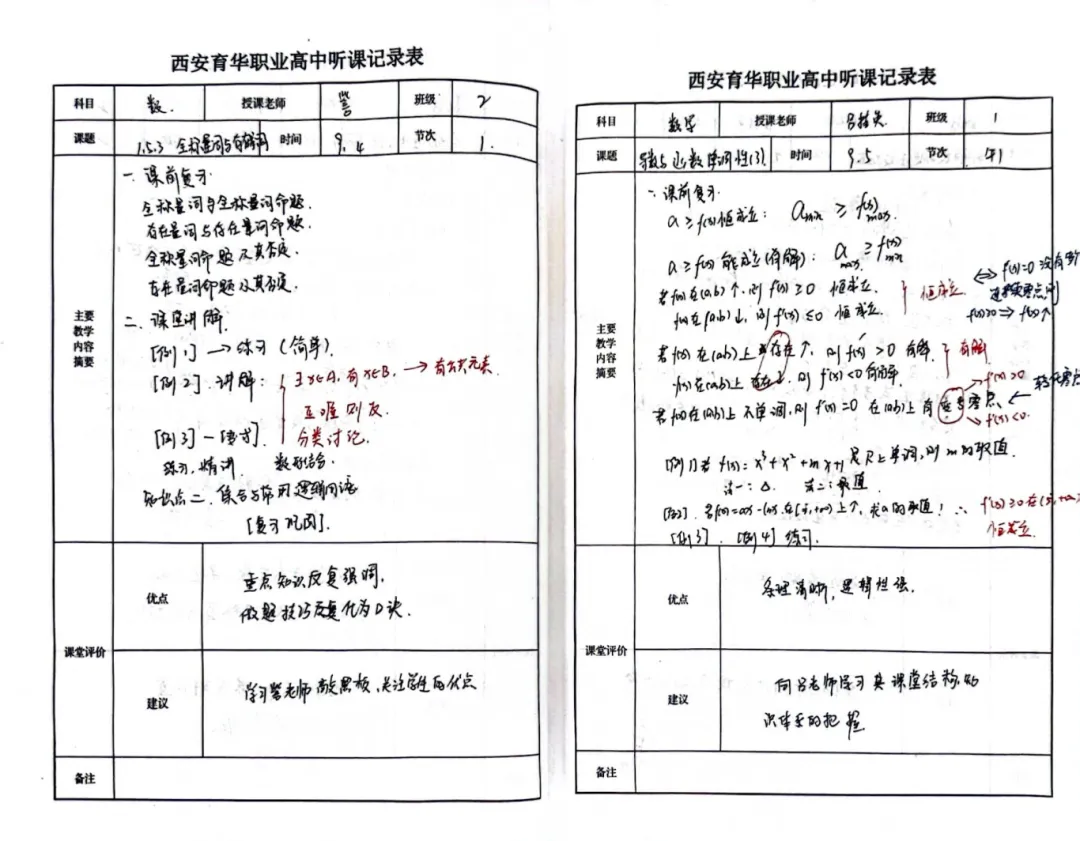 西安育华职业高中听课记录表
科目 数 授课老师 班级 2
课题 1.5.3 全称量词与存在量词 时间 9.4 节次 1.
主要教学内容摘要
一.课前复习.
全称量词与全称量词命题.
存在量词与存在量词命题.
全称量词命题及其否定.
存在量词命题及其否定.
二、课堂讲解
[例1] → 练习 (简单).
[例2] 讲解: ∃x∈A, 有x∈B, → 有公共元素.
正难则反
分类讨论.
[例3] - [变式].
练习、精讲. 数形结合.
知识点二. 集合与常用逻辑用语
[复习巩固].
课堂评价
优点
重点知识反复强调,
做题技巧反复化为口诀.
建议
学习老师高效黑板,关注学生的优点
备注
西安育华职业高中听课记录表
科目 数学 授课老师 吕 班级 1
课题 导数与函数单调性(3). 时间 9.5 节次
主要教学内容摘要
一、课前复习
a ≥ f(x)恒成立: a min ≥ f(x) max.
a ≥ f(x) 能成立(有解): a max ≥ f(x) min
若f(x)在(a,b)↑, 则f'(x) ≥ 0 恒成立.
f(x)在(a,b)↓, 则f'(x) ≤ 0 恒成立.
恒成立
⇔ f'(x)=0 没有
连续零点
f'(x)>0 ⇒ f(x)↑
若f(x)在(a,b)上存在↑, 则f'(x) > 0 有解.
f(x)在(a,b)上存在↓, 则f'(x) < 0 有解.
有解
若f(x)在(a,b)上不单调,则f'(x)=0 在(a,b)上有变号零点.
f'(x)>0
f'(x)<0.
[例1]若 f(x)=x³+x²+mx+1 是R上单调,则m的取值.
法一:△. 法二:最值
在 上↑, 求a的取值! ∴ f'(x)≥0在
恒成立
[例3]. [例4] 练习.
课堂评价
优点
条理清晰,逻辑性强.
建议
向吕老师学习其课堂结构,知
识体系的把握
备注